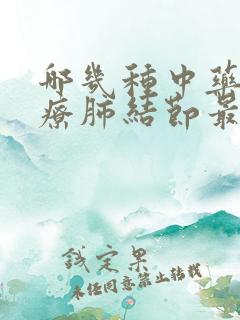 哪幾種中藥
療肺結節最
錢定果
未经同意禁止转载